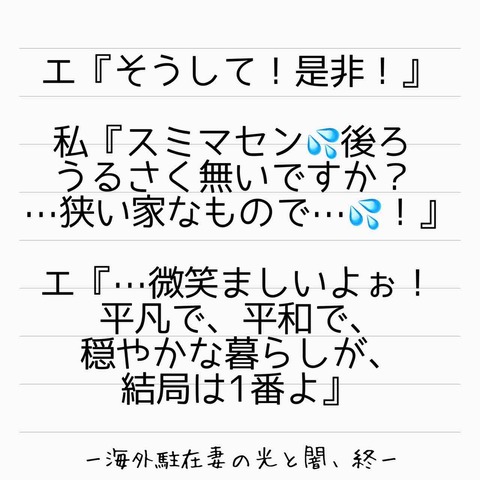 エ『そうして！是非！』
私『スミマセン💦後ろ
うるさく無いですか？
…狭い家なもので…💦！』
エ『…微笑ましいよぉ！
平凡で、平和で、
穏やかな暮らしが、
結局は1番よ』
ー海外駐在妻の光と闇、終ー